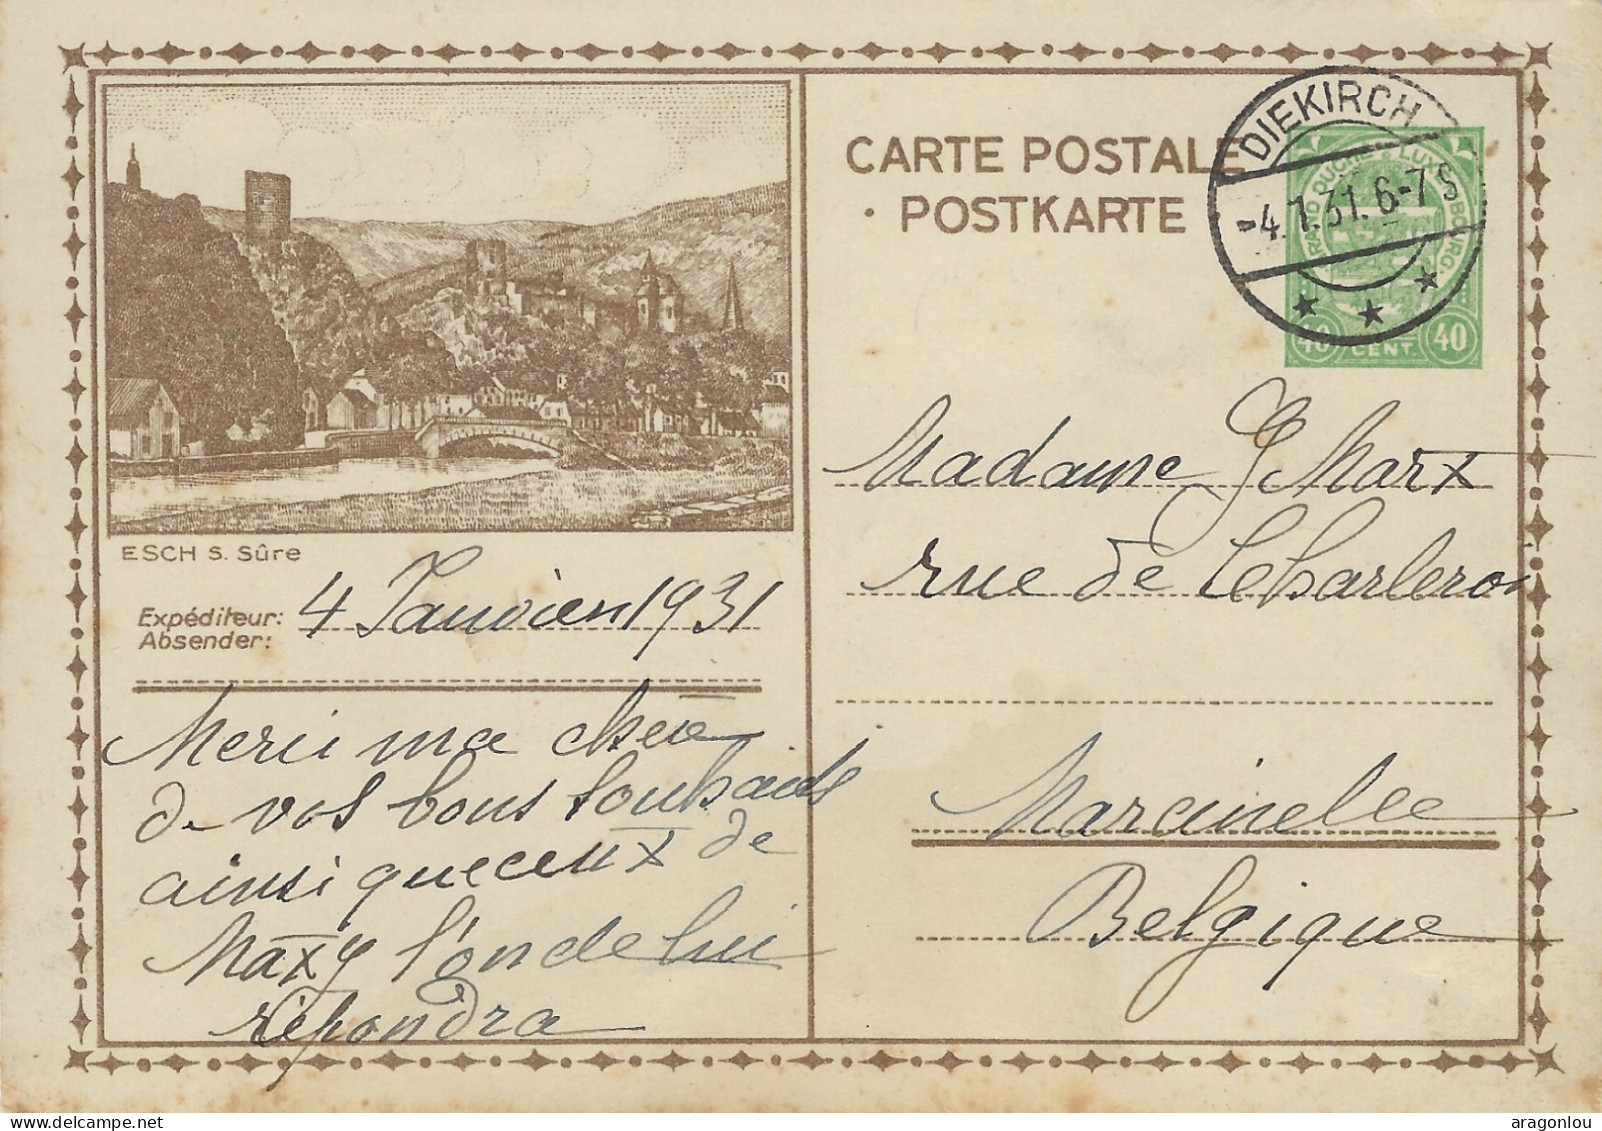 CARTE POSTALE
• POSTKARTE
DIEKIRCH
-4.1.31.6-7S
GRAND DUCHÉ DE LUXEMBOURG.
40 CENT. 40
ESCH S. Sûre
Expéditeur:
Absender:
4 Janvier 1931
Merci ma chère
de vos bons souhaits
ainsi que ceux de
Maxy l'oncle lui
répondra
Madame J Marx
rue de Charleroi
Marcinelle
Belgique
aragonlou